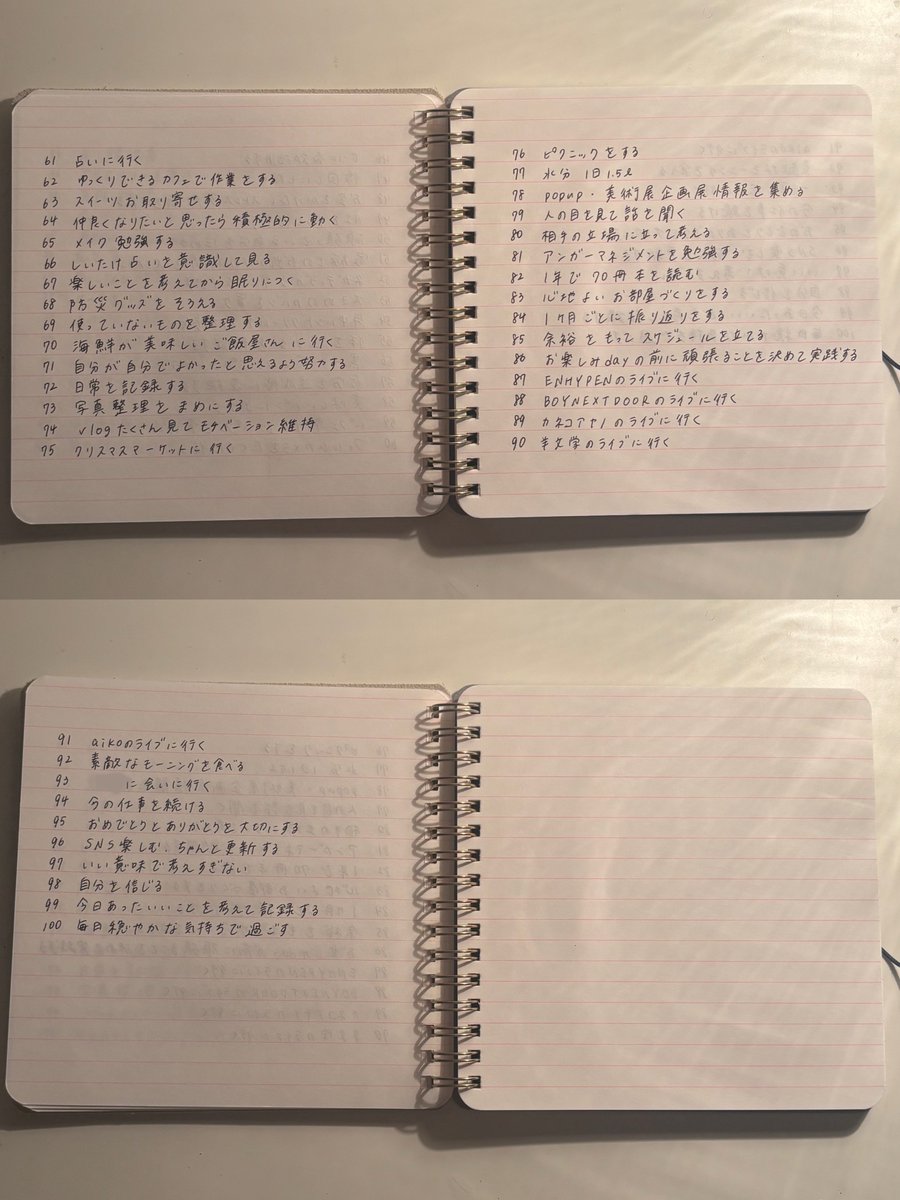 61 占いに行く
62 ゆっくりできるカフェで作業をする
63 スイーツお取り寄せする
64 仲良くなりたいと思ったら積極的に動く
65 メイク勉強する
66 しいたけ占いを意識して見る
67 楽しいことを考えてから眠りにつく
68 防災グッズをそろえる
69 使っていないものを整理する
70 海鮮が美味しいご飯屋さんに行く
71 自分が自分でよかったと思えるよう努力する
72 日常を記録する
73 写真整理をまめにする
74 vlogたくさん見てモチベーション維持
75 クリスマスマーケットに行く
76 ピクニックをする
77 水分 1日1.5ℓ
78 popup・美術展企画展情報を集める
79 人の目を見て話を聞く
80 相手の立場に立って考える
81 アンガーマネジメントを勉強する
82 1年で70冊本を読む
83 心地よいお部屋づくりをする
84 1ヶ月ごとに振り返りをする
85 余裕をもってスケジュールを立てる
86 お楽しみdayの前に頑張ることを決めて実践する
87 ENHYPENのライブに行く
88 BOYNEXTDOORのライブに行く
89 カネコアヤノのライブに行く
90 羊文学のライブに行く
91 aikoのライブに行く
92 素敵なモーニングを食べる
93 に会いに行く
94 今の仕事を続ける
95 おめでとうとありがとうを大切にする
96 SNS楽しむ、ちゃんと更新する
97 いい意味で考えすぎない
98 自分を信じる
99 今日あったいいことを考えて記録する
100 毎日穏やかな気持ちで過ごす